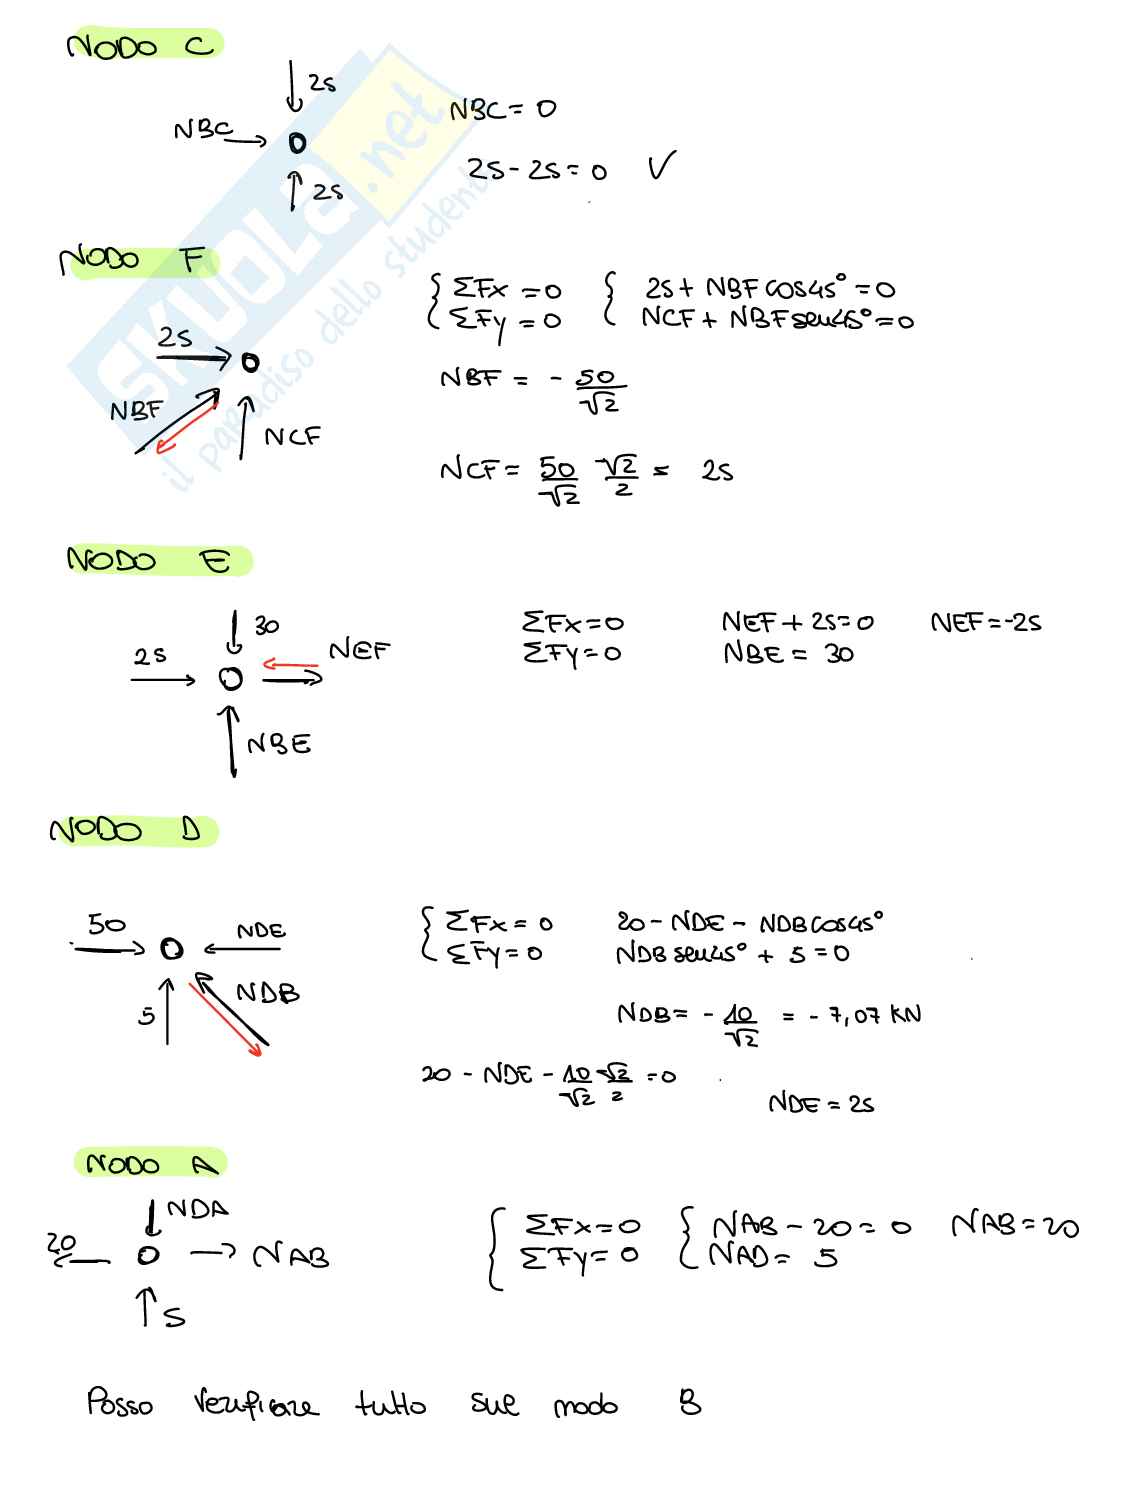 NODO C
25
NBC
25
NBC = 0
25 - 25 = 0 ✓
NODO F
25
NBF
NCF
ΣFx = 0
ΣFy = 0
25 + NBF cos45° = 0
NCF + NBF sen45° = 0
NBF = - 50/√2
NCF = 50/√2 √2/2 = 25
NODO E
30
25
NEF
NBE
ΣFx = 0 NEF + 25 = 0 NEF = -25
ΣFy = 0 NBE = 30
NODO D
50
NDE
NDB
5
ΣFx = 0 20 - NDE - NDB cos45°
ΣFy = 0 NDB sen45° + 5 = 0
NDB = - 10/√2 = - 7,07 KN
20 - NDE - 10/√2 √2/2 = 0
NDE = 25
NODO A
NDA
20
NAB
5
ΣFx = 0 NAB - 20 = 0 NAB = 20
ΣFy = 0 NAD = 5
Posso verificare tutto sul nodo B
SKUOLA.net
il paradiso dello studente